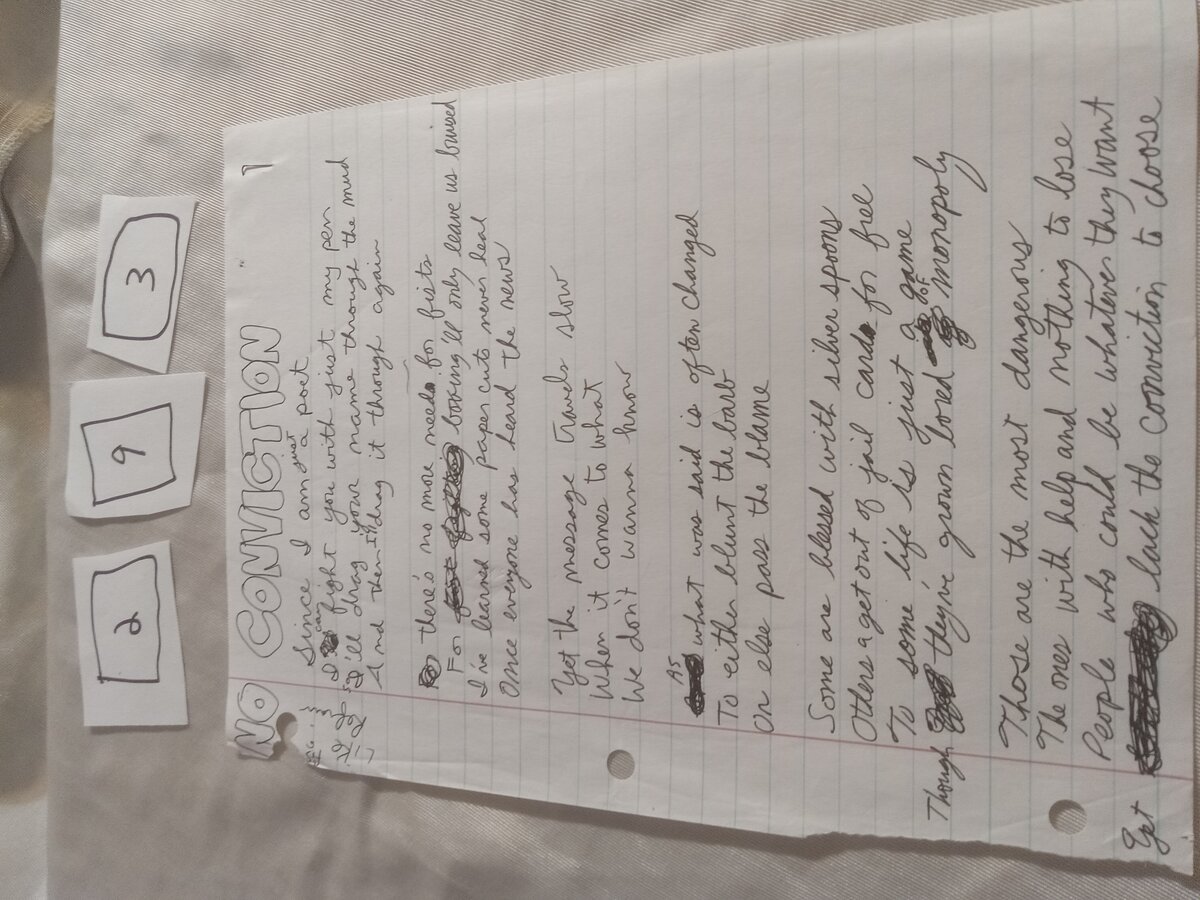 2 9 3
NO CONVICTION 1
Since I am just a poet
I can fight you with just my pen
I'll drag your name through the mud
And then I'll drag it through again
there's no more need for fists
For boxing'll only leave us bruised
I've learned some paper cuts never heal
Once everyone has heard the news
Yet the message travels slow
When it comes to what
We don't wanna know
As what was said is often changed
To either blunt the barb
Or else pass the blame
Some are blessed with silver spoons
Others a get out of jail card for free
To some life is just a game
Though they've grown bored of monopoly
Those are the most dangerous
The ones with help and nothing to lose
People who could be whatever they want
Yet lack the conviction to choose